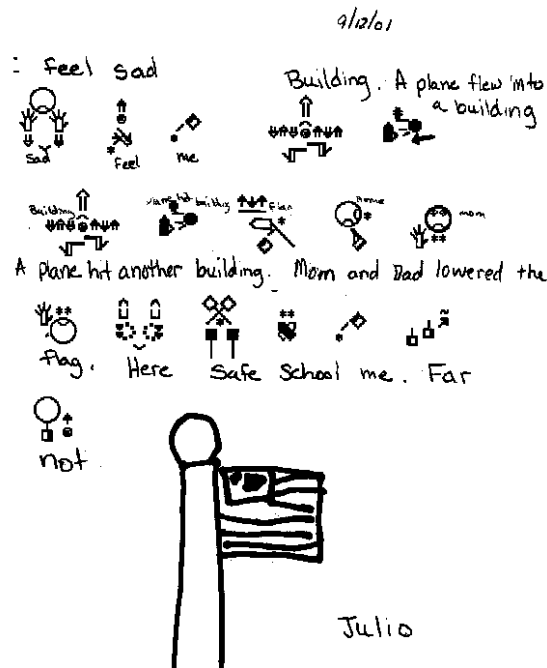 9/12/01
I feel sad
Building. A plane flew into
a building
sad feel me
Building plane hit building flag home mom
A plane hit another building. Mom and Dad lowered the
flag. Here safe school me. Far
not
Julio